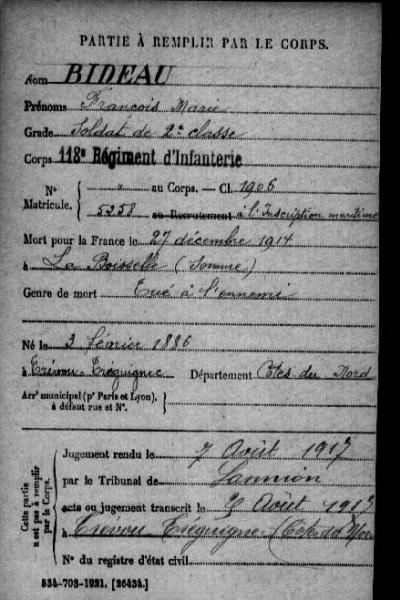 PARTIE À REMPLIR PAR LE CORPS.
Nom BIDEAU
Prénoms François Marie
Grade Soldat de 2e classe
Corps 118e Régiment d'Infanterie
N° " au Corps. — Cl. 1906
Matricule. 5258 au Recrutement à l'Inscription maritime
Mort pour la France le 27 décembre 1914
à La Boisselle (Somme)
Genre de mort Tué à l'ennemi
Né le 3 février 1886
à Trévou-Treguignec Département Côtes du Nord
Arrt municipal (pr Paris et Lyon),
à défaut rue et N°.
Cette partie
n'est pas à remplir
par le Corps.
Jugement rendu le 7 Août 1917
par le Tribunal de Lannion
acte ou jugement transcrit le Août 1917
à Trevou Treguignec (Côtes du Nord
N° du registre d'état civil
534-708-1921. [26434.]